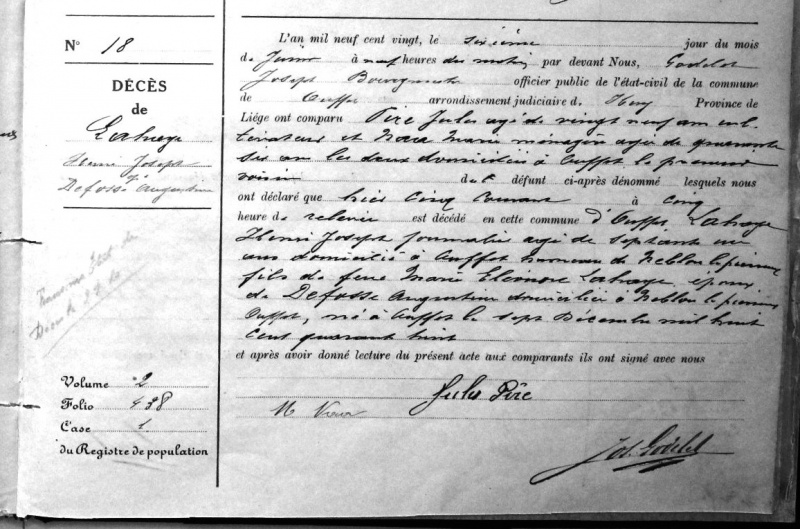 N° 18
DÉCÈS
de
Lahaye
Henri Joseph
Defosse Augustine
Volume 2
Folio 438
Case 1
du Registre de population
L'an mil neuf cent vingt, le sixième jour du mois
de Juin à neuf heures du matin par devant Nous, Godelet
Joseph Bourgmestre officier public de l'état-civil de la commune
de Ouffet arrondissement judiciaire d. Huy Province de
Liége ont comparu Pire Jules agé de vingt neuf ans cul-
tivateur et Marie ménagère agée de quarante
six ans les deux domiciliés à Ouffet le premier
voisin du défunt ci-après dénommé lesquels nous
ont déclaré que hier cinq courant à cinq
heure de relevée est décédé en cette commune d'Ouffet Lahaye
Henri Joseph journalier agé de septante un
ans domicilié à Ouffet hameau de Neblon le pierreux
fils de feue Marie Eléonore Lahaye, époux
de Defosse Augustine domiciliée à Neblon le pierreux
Ouffet, né à Ouffet le sept Décembre mil huit
cent quarant huit
et après avoir donné lecture du présent acte aux comparants ils ont signé avec nous
Jules Pire
M
Jos. Godelet